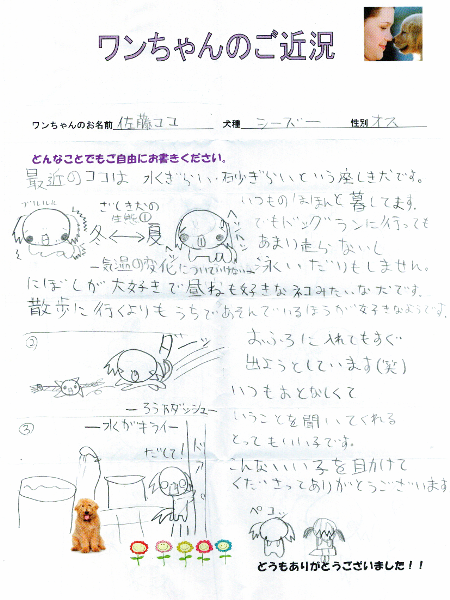 ワンちゃんのご近況
ワンちゃんのお名前 佐藤ココ 犬種 シーズー 性別 オス
どんなことでもご自由にお書きください。
最近のココは 水ぎらい・砂ぎらいという座しき犬です。
ブルルル
ざしき犬の
生態①
冬 ↔ 夏
ー気温の変化についていけないー
いつものほほんと暮してます。
でもドッグランに行っても
あまり走らないし
泳いだりもしません。
にぼしが大好きで昼ねも好きなネコみたいな犬です。
散歩に行くよりもうちであそんでいるほうが好きなようです。
②
ダーッ
ーろう下ダッシュー
おふろに入れてもすぐ
出ようとしています(笑)
いつもおとなしくて
いうことを聞いてくれる
とってもいい子です。
③
ー水がキライー
だして!
こんないい子を助けて
くださってありがとうございます
ペコッ
どうもありがとうございました!!